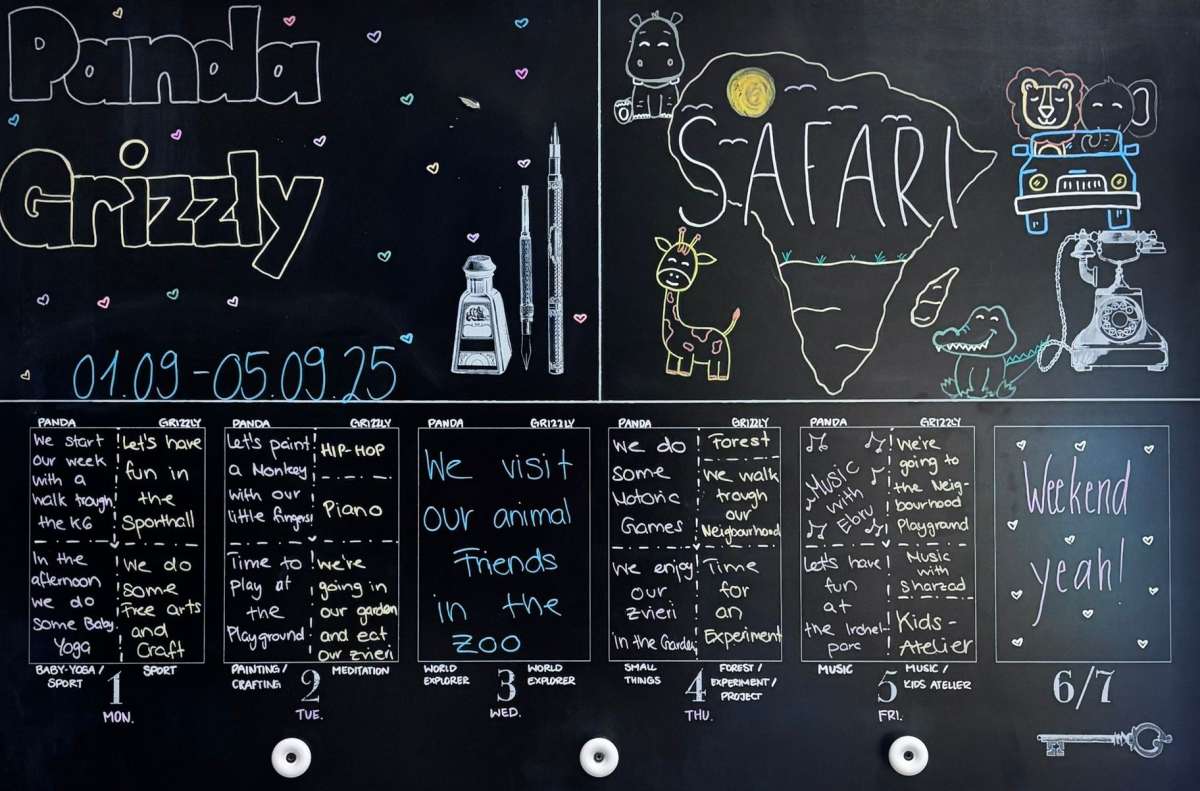 Panda
Grizzly
01.09 - 05.09.25
SAFARI
PANDA
GRIZZLY
We start
our week
with a
walk trough
the KG
In the
afternoon
we do
some Baby
Yoga
Let's have
fun in
the
Sporthall
We do
some
Free arts
and
Craft
BABY-YOGA /
SPORT
SPORT
1
MON.
PANDA
GRIZZLY
Let's paint
a Monkey
with our
little fingers!
Time to
play at
the
Playground
HIP-HOP
Piano
We're
going in
our garden
and eat
our zvieri
PAINTING /
CRAFTING
MEDITATION
2
TUE.
PANDA
GRIZZLY
We visit
our animal
Friends
in the
ZOO
WORLD
EXPLORER
WORLD
EXPLORER
3
WED.
PANDA
GRIZZLY
We do
some
Motoric
Games
We enjoy
our
Zvieri
in the Garden
Forest
We walk
trough
our
Neigbourhood
Time
for
an
Experiment
SMALL
THINGS
FOREST /
EXPERIMENT /
PROJECT
4
THU.
PANDA
GRIZZLY
Music
with
Ebru
Let's have
fun
at
the Irchel-
parc
We're
going to
the Neig-
bourhood
Playground
Music
with
Sharzad
Kids-
Atelier
MUSIC
MUSIC /
KIDS ATELIER
5
FRI.
Weekend
yeah!
6/7